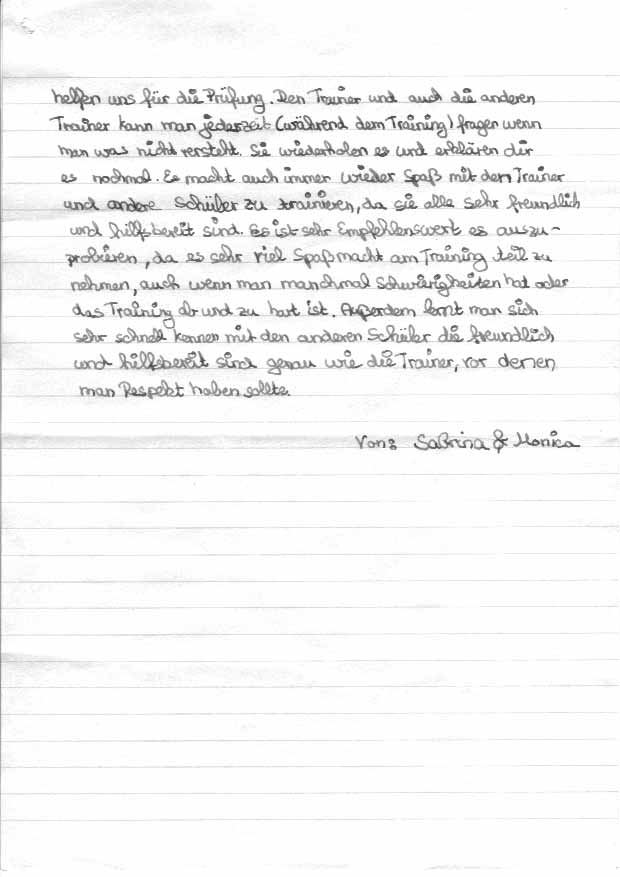 helfen uns für die Prüfung. Den Trainer und auch die anderen
Trainer kann man jederzeit (während dem Training) fragen wenn
man was nicht versteht. Sie wiederholen es und erklären dir
es nochmal. Es macht auch immer wieder Spaß mit den Trainer
und andere Schüler zu trainieren, da sie alle sehr freundlich
und hilfsbereit sind. Es ist sehr Empfehlenswert es auszu-
probieren, da es sehr viel Spaß macht am Training teil zu
nehmen, auch wenn man manchmal Schwierigkeiten hat oder
das Training ab und zu hart ist. Außerdem lernt man sich
sehr schnell kennen mit den anderen Schüler die freundlich
und hilfsbereit sind genau wie die Trainer, vor denen
man Respekt haben sollte.
Von: Sabrina & Monica